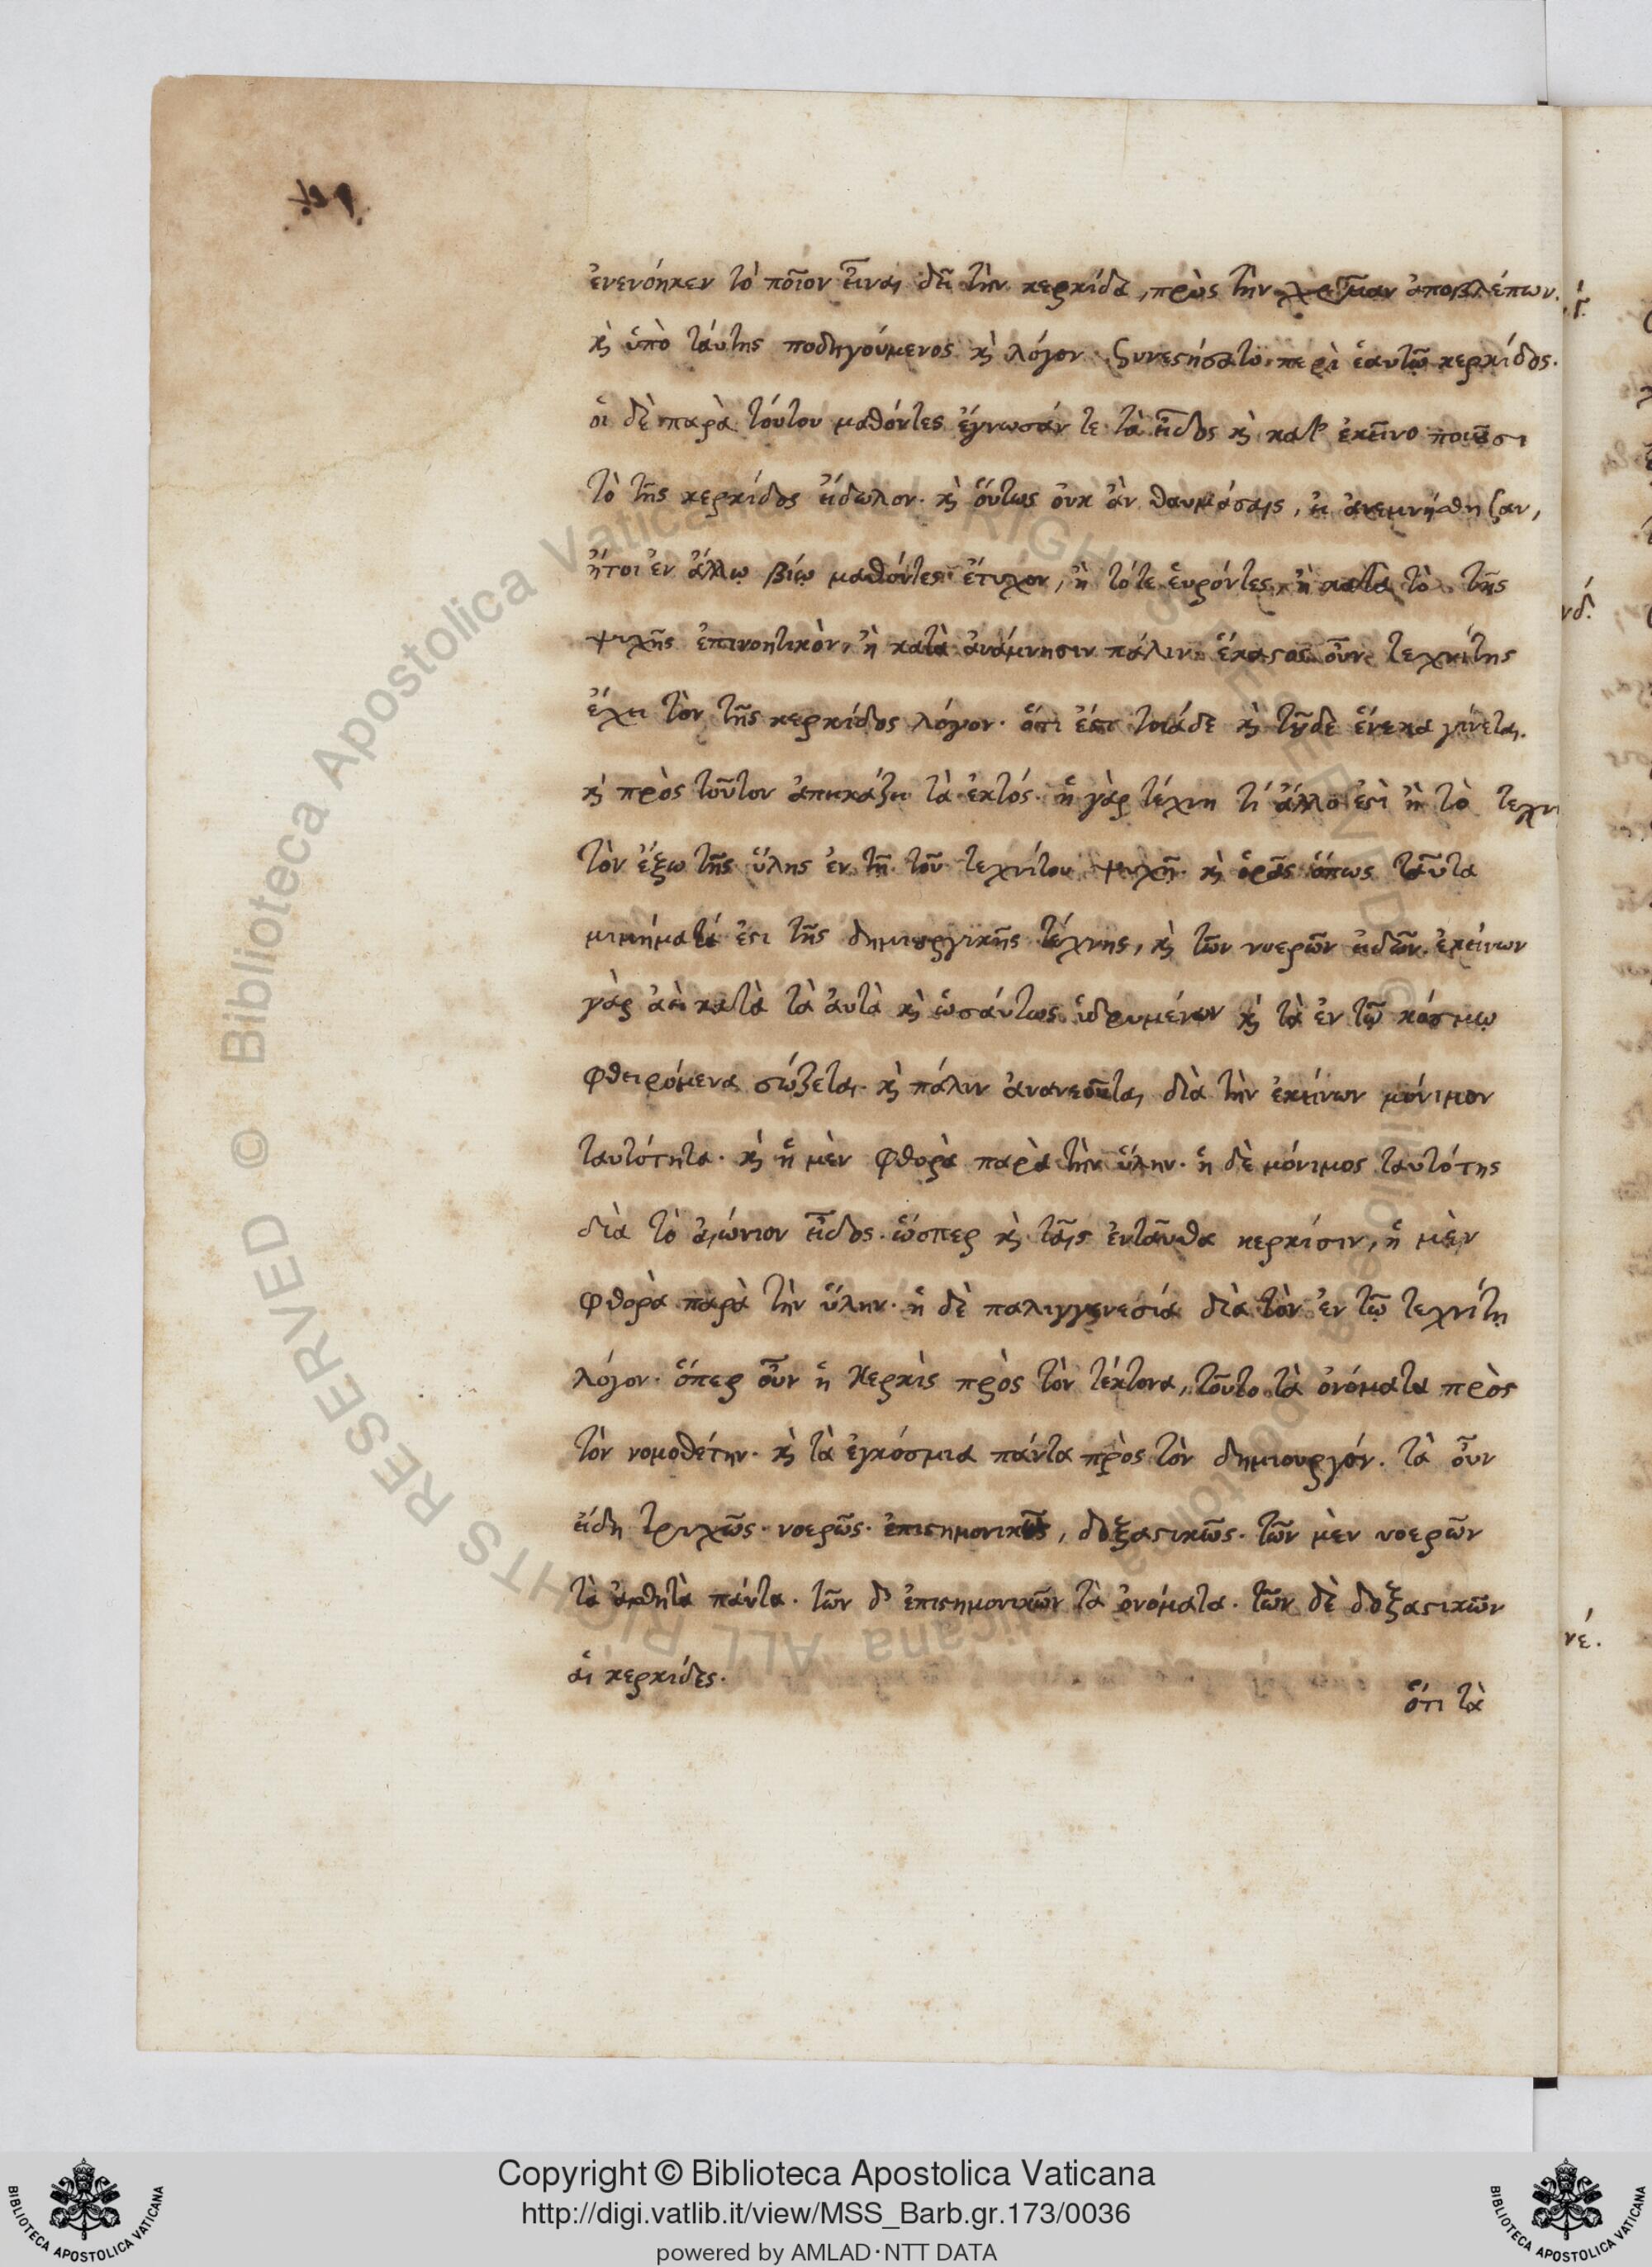 ἐνενόηκεν τὸ ποῖον εἶναι δεῖ τὴν κερκίδα, πρὸς τὴν χρείαν ἀποβλέπων.
ϗ ὑπὸ ταύτης ποδηγούμενος ϗ λόγον συνεστήσατο περὶ ἑαυτῷ κερκίδος.
οἱ δὲ παρὰ τούτου μαθόντες ἔγνωσάν τε τὰ εἶδος ϗ κατ' ἐκεῖνο ποιοῦσι
τὸ τῆς κερκίδος εἴδωλον. ϗ οὕτως οὐκ ἂν θαυμάσαις, εἰ ἀνεμνήσθησαν,
ἤτοι ἐν ἄλλῳ βίῳ μαθόντες ἔτυχον, ἢ τότε εὑρόντες, ἢ κατὰ τὸ τῆς
ψυχῆς ἐπινοητικὸν, ἢ κατὰ ἀνάμνησιν πάλιν. ἕκαστος οὖν τεχνίτης
ἔχει τὸν τῆς κερκίδος λόγον. ὅτι ἐστὶ τοιάδε ϗ τοῦδε ἕνεκα γίνεται.
ϗ πρὸς τοῦτον ἀπεικάζει τὰ ἐκτός. ἡ γὰρ τέχνη τί ἄλλο ἐστὶ ἢ τὸ τεχνι
τὸν ἔξω τῆς ὕλης ἐν τῇ τοῦ τεχνίτου ψυχῇ. ϗ ὁρᾷς ὅπως ταῦτα
μιμήματά ἐστι τῆς δημιουργικῆς τέχνης, ϗ τῶν νοερῶν εἰδῶν. ἐκείνων
γὰρ ἀεὶ κατὰ τὰ αὐτὰ ϗ ὡσαύτως ἱδρυμένων ϗ τὰ ἐν τῷ κόσμῳ
φθειρόμενα σώζεται. ϗ πάλιν ἀνανεοῦται διὰ τὴν ἐκείνων μόνιμον
ταυτότητα. ϗ ἡ μὲν φθορὰ παρὰ τὴν ὕλην. ἡ δὲ μόνιμος ταυτότης
διὰ τὸ αἰώνιον εἶδος. ὥσπερ ϗ ταῖς ἐνταῦθα κερκίσιν, ἡ μὲν
φθορὰ παρὰ τὴν ὕλην. ἡ δὲ παλιγγενεσία διὰ τὸν ἐν τῷ τεχνίτῃ
λόγον. ὅπερ οὖν ἡ κερκὶς πρὸς τὸν τέκτονα, τοῦτο τὰ ὀνόματα πρὸς
τὸν νομοθέτην. ϗ τὰ ἐγκόσμια πάντα πρὸς τὸν δημιουργόν. τὰ οὖν
εἴδη τριχῶς. νοερῶς. ἐπιστημονικῶς, δοξαστικῶς. τῶν μὲν νοερῶν
τὰ αἰσθητὰ πάντα. τῶν δ' ἐπιστημονικῶν τὰ ὀνόματα. τῶν δὲ δοξαστικῶν
αἱ κερκίδες.
ὅτι τὰ
νδ.
νε.
Copyright © Biblioteca Apostolica Vaticana
http://digi.vatlib.it/view/MSS_Barb.gr.173/0036
powered by AMLAD·NTT DATA
BIBLIOTECA APOSTOLICA VATICANA
BIBLIOTECA APOSTOLICA VATICANA
© Biblioteca Apostolica Vaticana ALL RIGHTS RESERVED